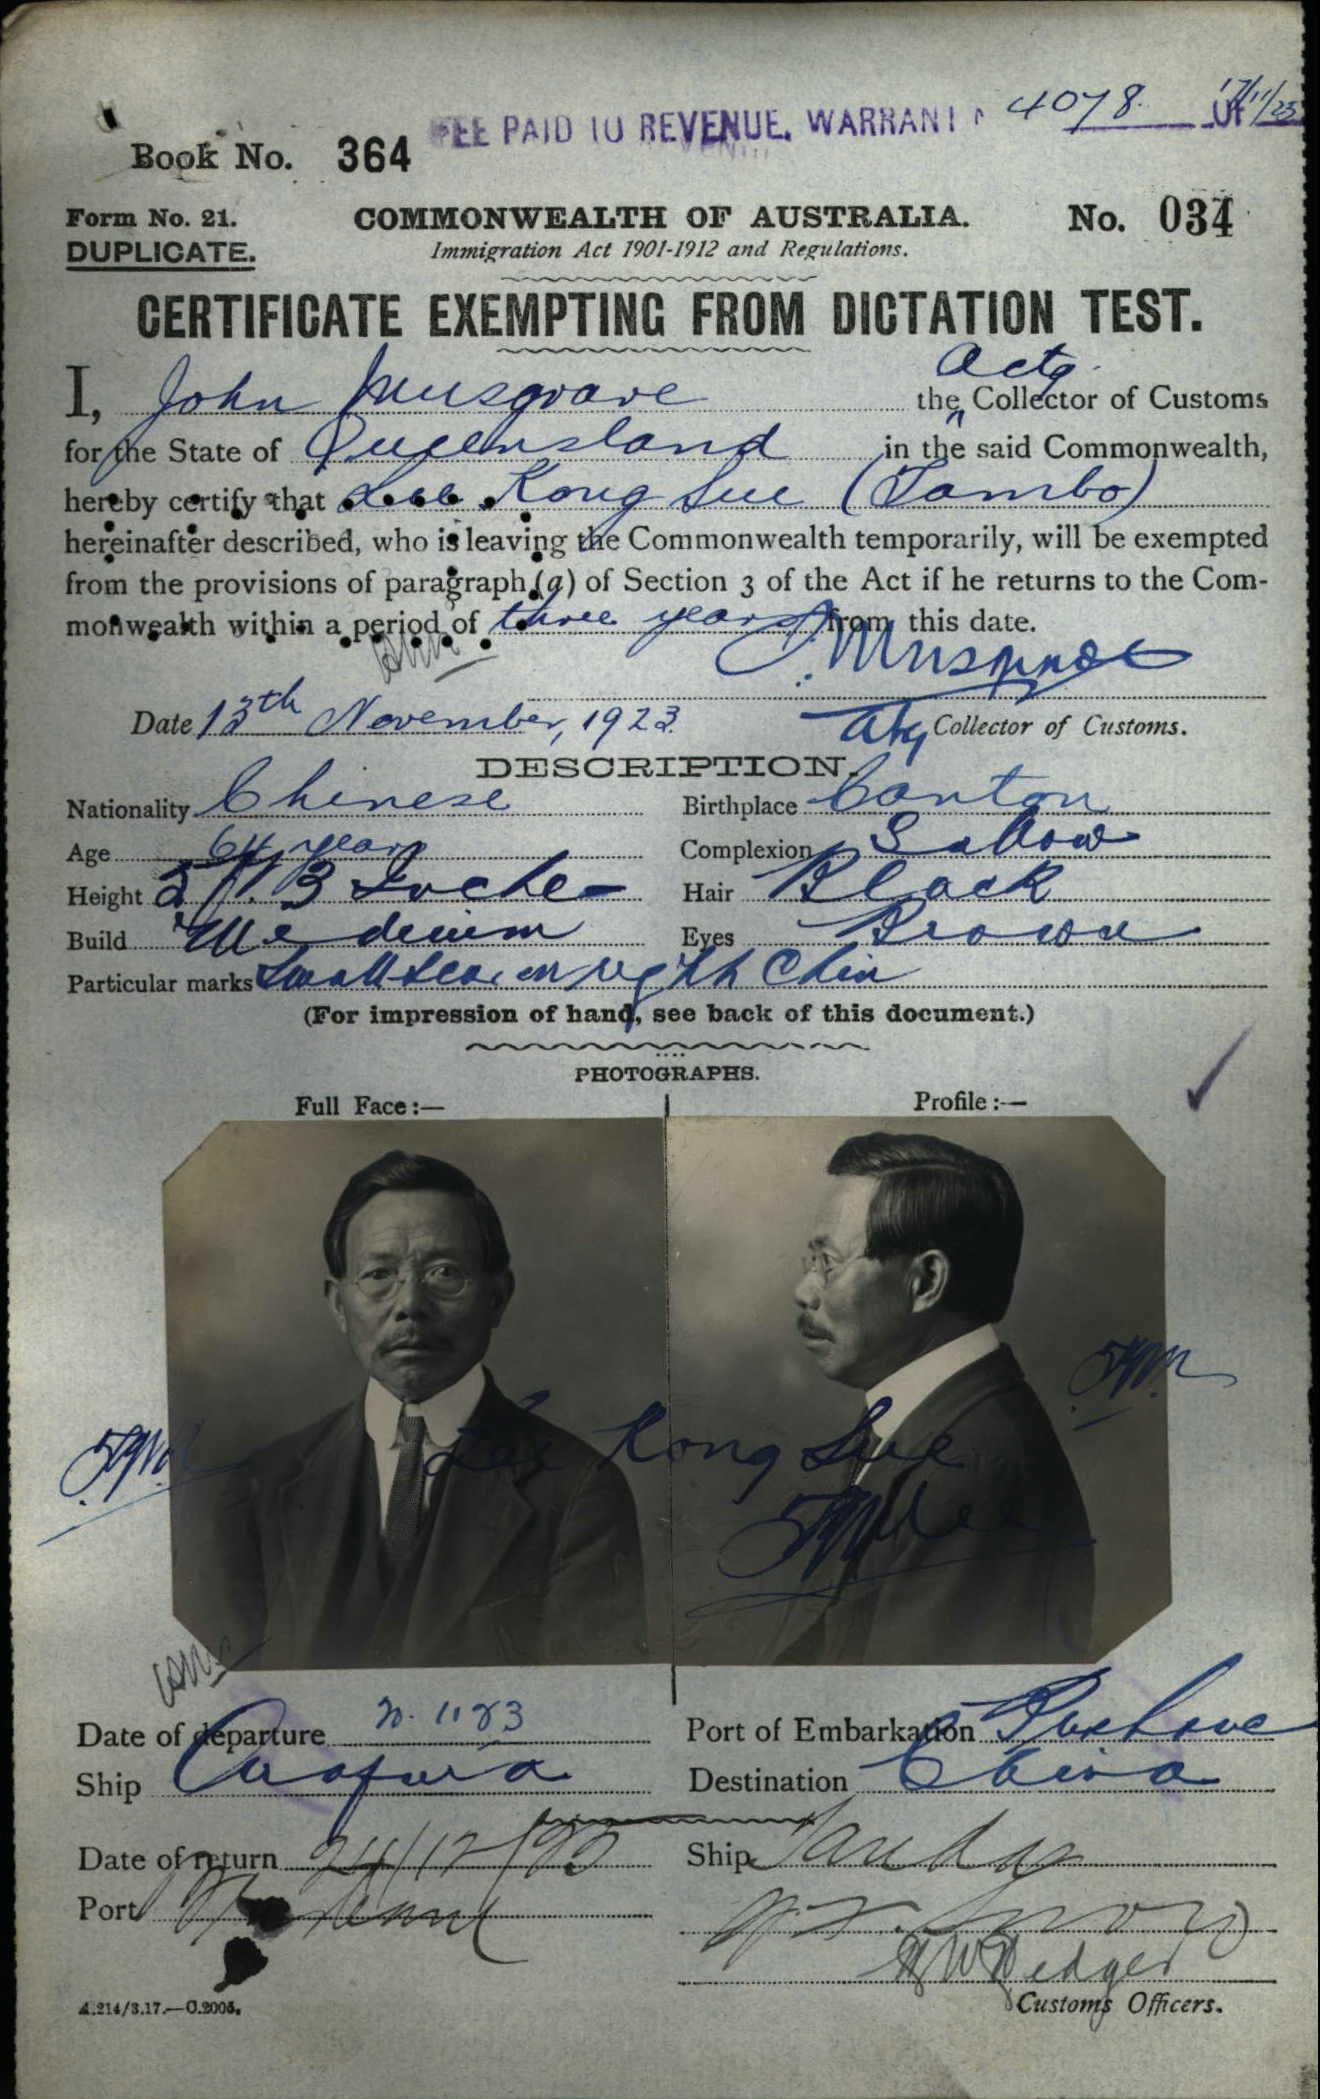 FEE PAID TO REVENUE. WARRANT 4078 OF 17/11/23
Book No. 364
Form No. 21. COMMONWEALTH OF AUSTRALIA. No. 034
DUPLICATE. Immigration Act 1901-1912 and Regulations.
CERTIFICATE EXEMPTING FROM DICTATION TEST.
I, John Musgrave the Actg. Collector of Customs
for the State of Queensland in the said Commonwealth,
hereby certify that Lee Kong Sue (Tambo)
hereinafter described, who is leaving the Commonwealth temporarily, will be exempted
from the provisions of paragraph (a) of Section 3 of the Act if he returns to the Com-
monwealth within a period of three years from this date.
J. Musgrave
Date 13th November, 1923. Actg Collector of Customs.
DESCRIPTION.
Nationality Chinese Birthplace Canton
Age 64 years Complexion Sallow
Height 5 ft. 3 Inches Hair Black
Build Medium Eyes Brown
Particular marks Small scar on right Chin
(For impression of hand, see back of this document.)
PHOTOGRAPHS.
Full Face:— Profile:—
Lee Kong Sue
Date of departure 11 23 Port of Embarkation Brisbane
Ship Arafura Destination China
Date of return 24/12/25 Ship Tanda
Port Brisbane
Customs Officers.
A.214/3.17.—C.2005.